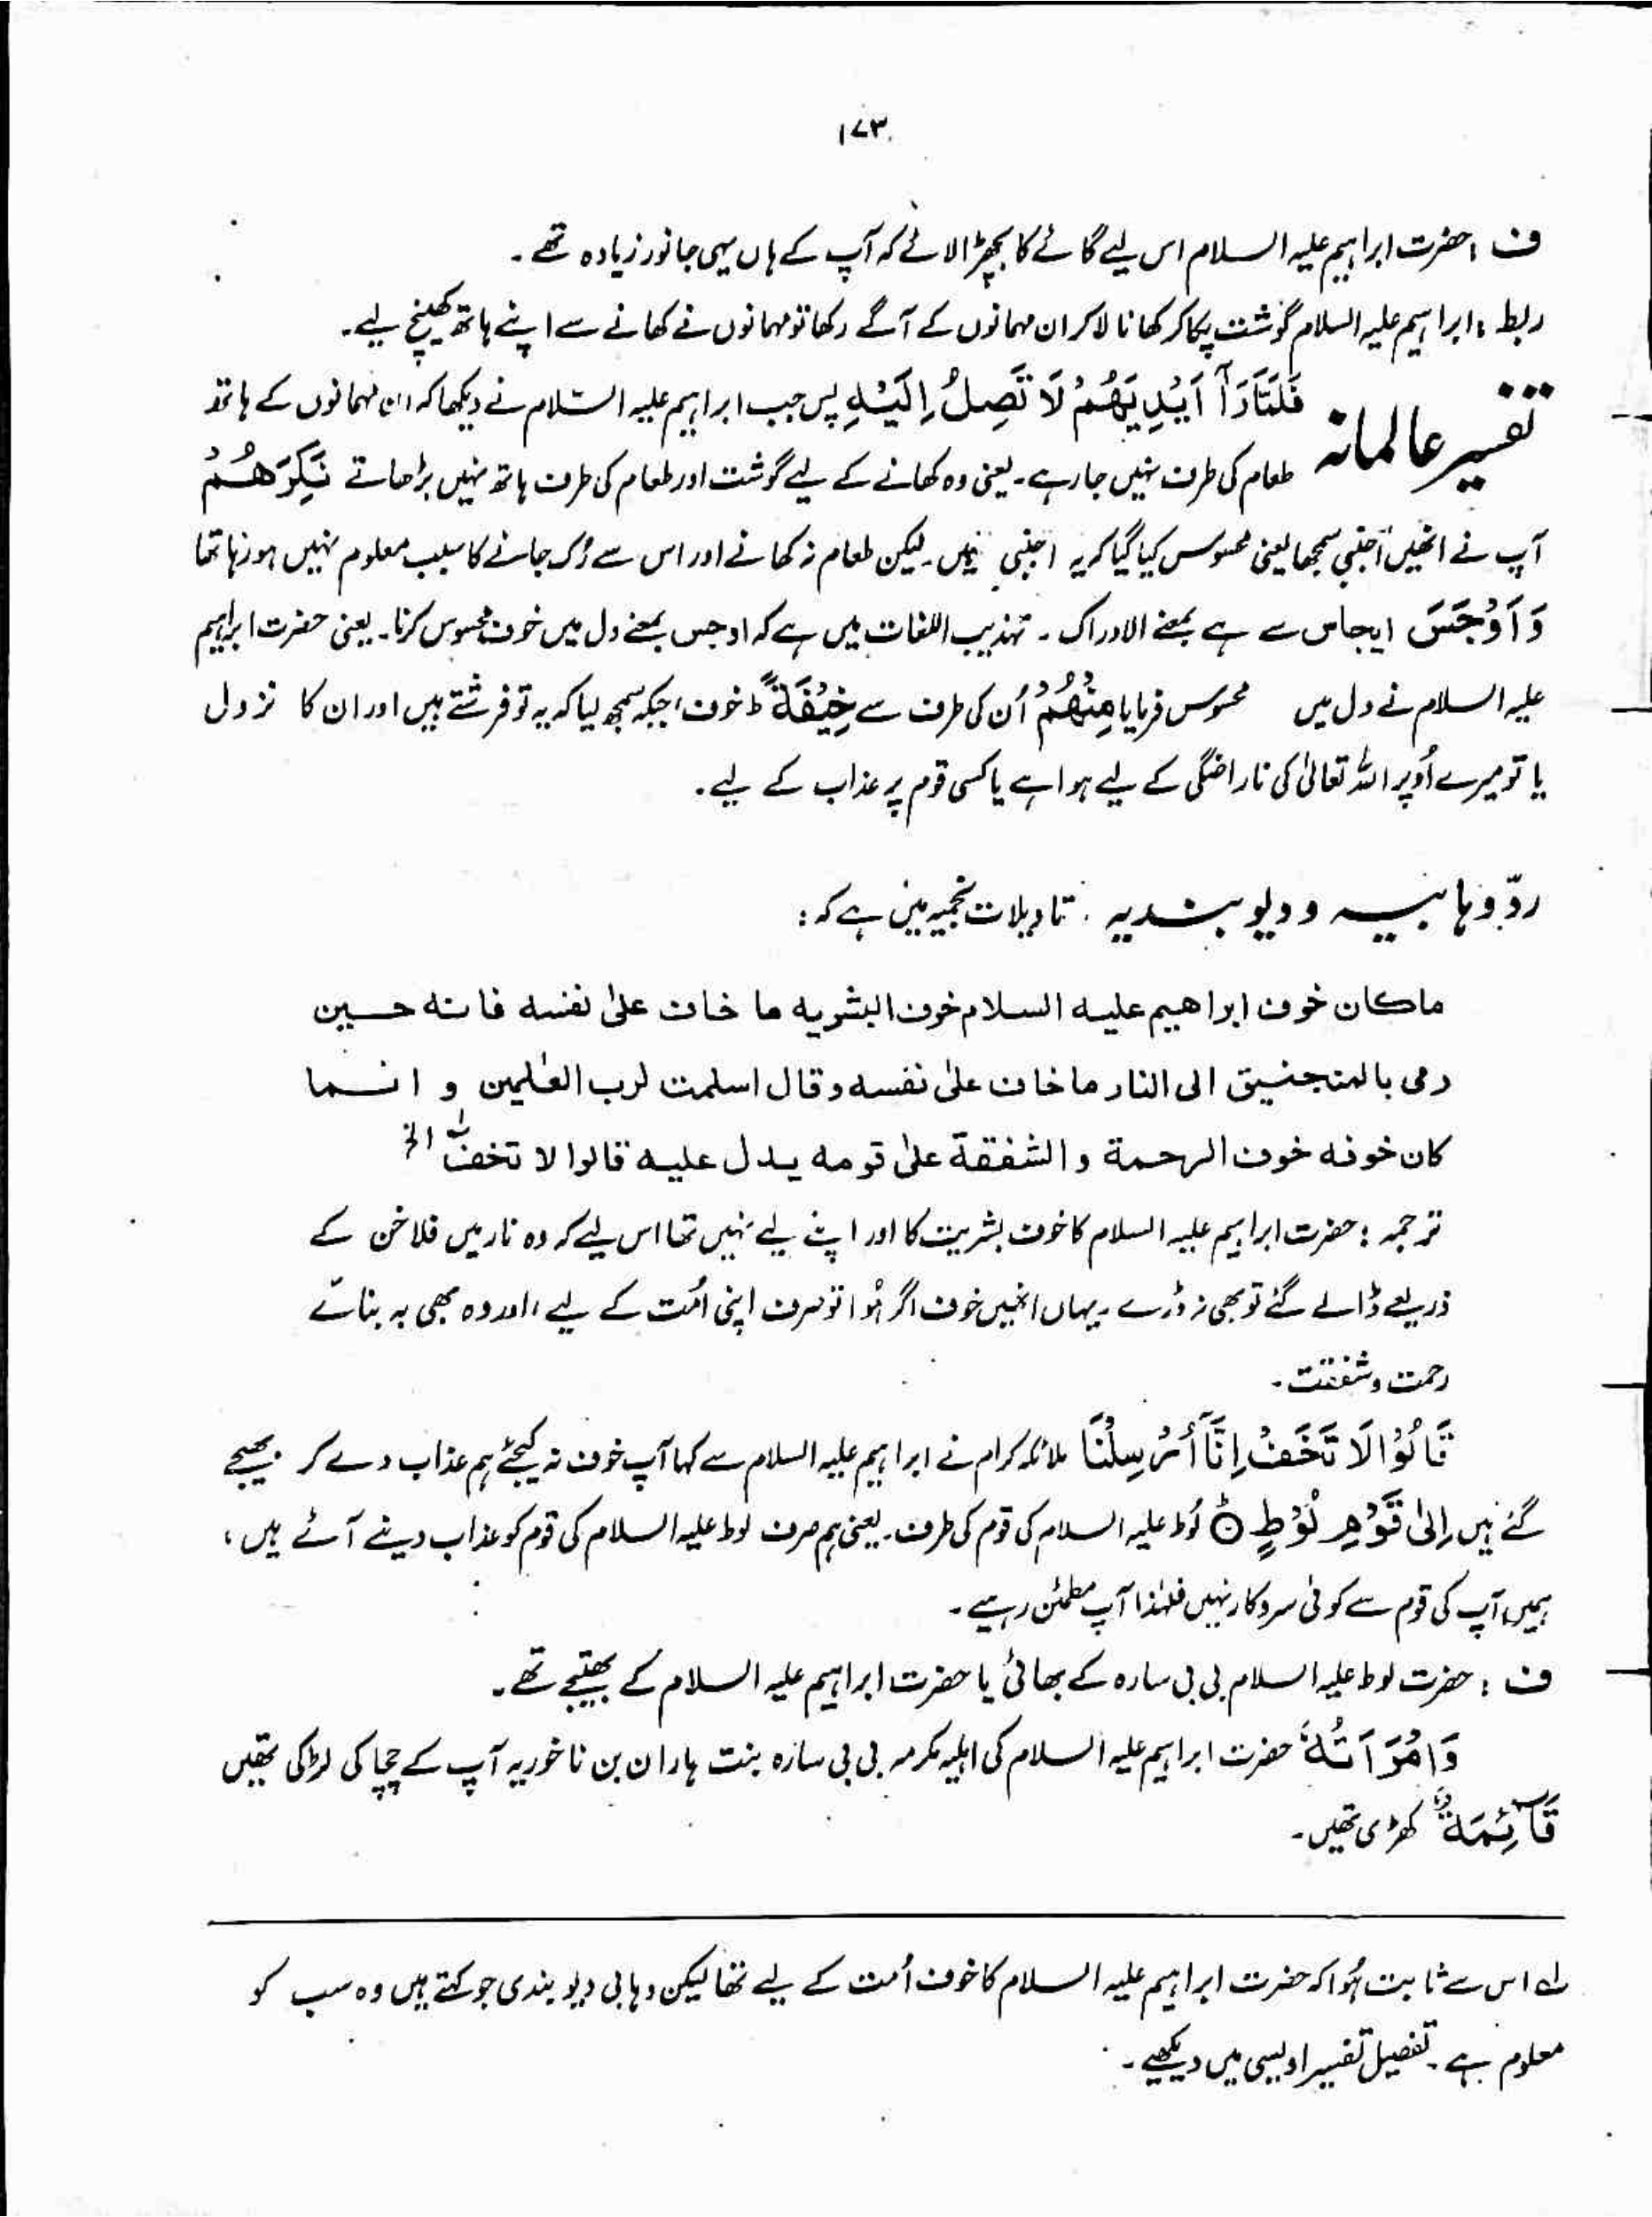 ۱۷۳
ف : حضرت ابراہیم علیہ السلام اس لیے گائے کا بچھڑا لائے کہ آپ کے ہاں یہی جانور زیادہ تھے ۔
ربط : ابراہیم علیہ السلام گوشت پکا کر کھانا لا کر ان مہمانوں کے آگے رکھا تو مہمانوں نے کھانے سے اپنے ہاتھ کھینچ لیے ۔
تفسیر عالمانہ فَلَمَّا رَآٰ اَیْدِیَهُمْ لَا تَصِلُ اِلَیْهِ پس جب ابراہیم علیہ السّلام نے دیکھا کہ ان مہمانوں کے ہاتھ
طعام کی طرف نہیں جا رہے ۔ یعنی وہ کھانے کے لیے گوشت اور طعام کی طرف ہاتھ نہیں بڑھاتے نَکِرَهُمْ
آپ نے انھیں اجنبی سمجھا یعنی محسوس کیا گیا کہ یہ اجنبی ہیں ۔ لیکن طعام نہ کھانے اور اس سے رُک جانے کا سبب معلوم نہیں ہو رہا تھا
وَ اَوْجَسَ ایجاس سے ہے بمعنے الادراک ۔ تہذیب اللغات میں ہے کہ اوجس بمعنے دل میں خوف محسوس کرنا ۔ یعنی حضرت ابراہیم
علیہ السلام نے دل میں محسوس فرمایا مِنْهُمْ اُن کی طرف سے خِیْفَةً ط خوف ، جبکہ سمجھ لیا کہ یہ تو فرشتے ہیں اور ان کا نزول
یا تو میرے اُوپر اللہ تعالیٰ کی ناراضگی کے لیے ہوا ہے یا کسی قوم پر عذاب کے لیے ۔
ردّ وہابیہ و دیوبندیہ : تاویلات نجمیہ میں ہے کہ :
ماکان خوف ابراهیم علیه السلام خوف البشریه ما خاف علیٰ نفسه فانه حسین
رمی بالمنجنیق الی النار ما خاف علیٰ نفسه وقال اسلمت لرب العٰلمین و انما
کان خوفه خوف الرحمة و الشفقة علیٰ قومه یدل علیه قالوا لا تخف لہ الخ
ترجمہ : حضرت ابراہیم علیہ السلام کا خوف بشریت کا اور اپنے لیے نہیں تھا اس لیے کہ وہ نار میں فلاخن کے
ذریعے ڈالے گئے تو بھی نہ ڈرے ۔ یہاں انھیں خوف اگر ہُوا تو صرف اپنی اُمت کے لیے ، اور وہ بھی بہ بنائے
رحمت و شفقت ۔
قَالُوْا لَا تَخَفْ اِنَّآ اُرْسِلْنَا ملائکہ کرام نے ابراہیم علیہ السلام سے کہا آپ خوف نہ کیجئے ہم عذاب دے کر بھیجے
گئے ہیں اِلیٰ قَوْمِ لُوْطٍ ۝ لُوط علیہ السلام کی قوم کی طرف ۔ یعنی ہم صرف لوط علیہ السلام کی قوم کو عذاب دینے آئے ہیں ،
ہمیں آپ کی قوم سے کوئی سروکار نہیں فلہٰذا آپ مطمئن رہیے ۔
ف : حضرت لوط علیہ السلام بی بی سارہ کے بھائی یا حضرت ابراہیم علیہ السلام کے بھتیجے تھے ۔
وَ امْرَاَتُهٗ حضرت ابراہیم علیہ السلام کی اہلیہ مکرمہ بی بی سارہ بنت ہاران بن ناخور یہ آپ کے چچا کی لڑکی تھیں
قَآئِمَةٌ کھڑی تھیں ۔
لہ اس سے ثابت ہُوا کہ حضرت ابراہیم علیہ السلام کا خوف اُمت کے لیے تھا لیکن وہابی دیوبندی جو کہتے ہیں وہ سب کو
معلوم ہے ۔ تفصیل تفسیر اویسی میں دیکھیے ۔